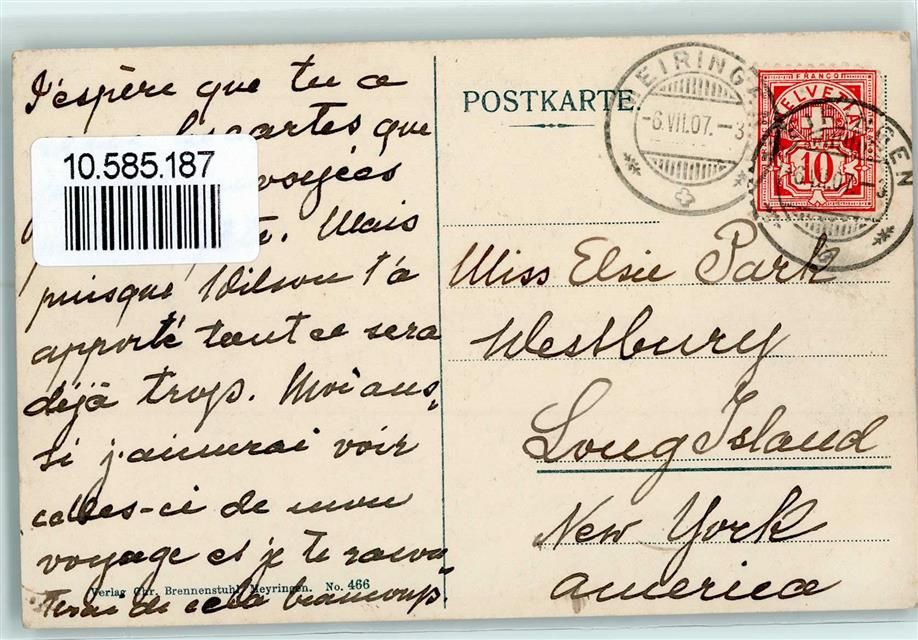 J'espère que tu a
cartes que
10.585.187
voyées
Mais
puisque Wilson t'a
apporté tout ce sera
déjà trop. Moi aus-
si j'aimerai voir
celles-ci de mon
voyage et je te racon-
terai de cela beaucoup
Verlag Chr. Brennenstuhl Meyringen. No. 466
POSTKARTE.
MEIRINGEN
-6.VII.07.-3
FRANCO
HELVETIA
10
Miss Elsie Park
Westbury
Long Island
New York
America